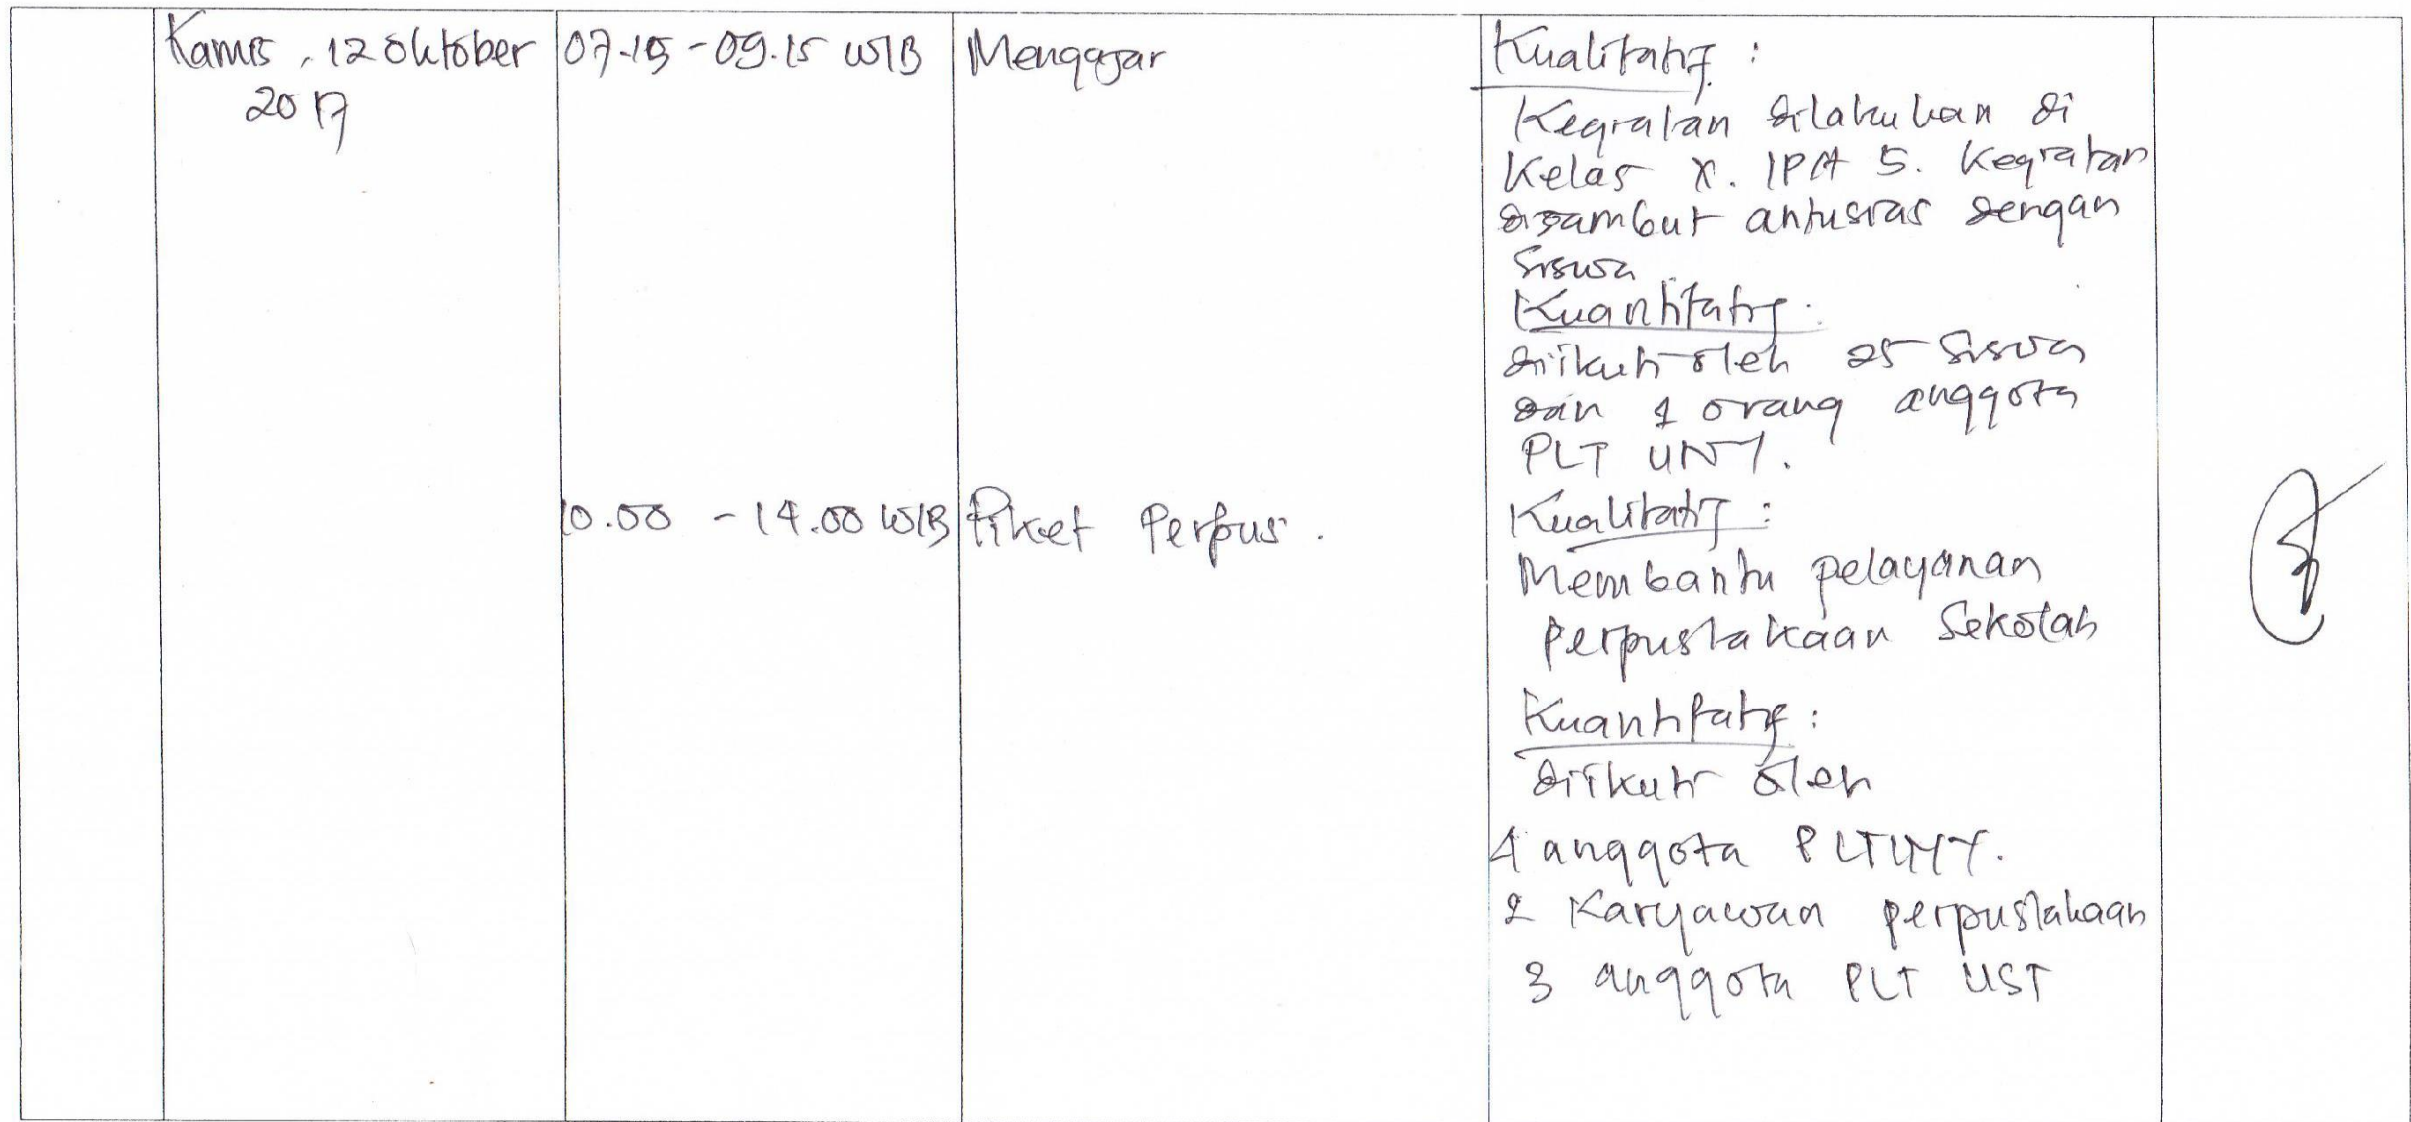 Kamis, 12 Oktober
2017
07.15 - 09.15 WIB
Mengajar
Kualitatif :
Kegiatan dilakukan di
Kelas X. IPA 5. Kegiatan
disambut antusias dengan
Siswa
Kuantitatif :
diikuti oleh 25 Siswa
dan 1 orang anggota
PLT UNY.
10.00 - 14.00 WIB
Piket Perpus.
Kualitatif :
Membantu pelayanan
Perpustakaan Sekolah
Kuantitatif :
diikuti oleh
4 anggota PLT UNY.
2 Karyawan perpustakaan
3 anggota PLT UST